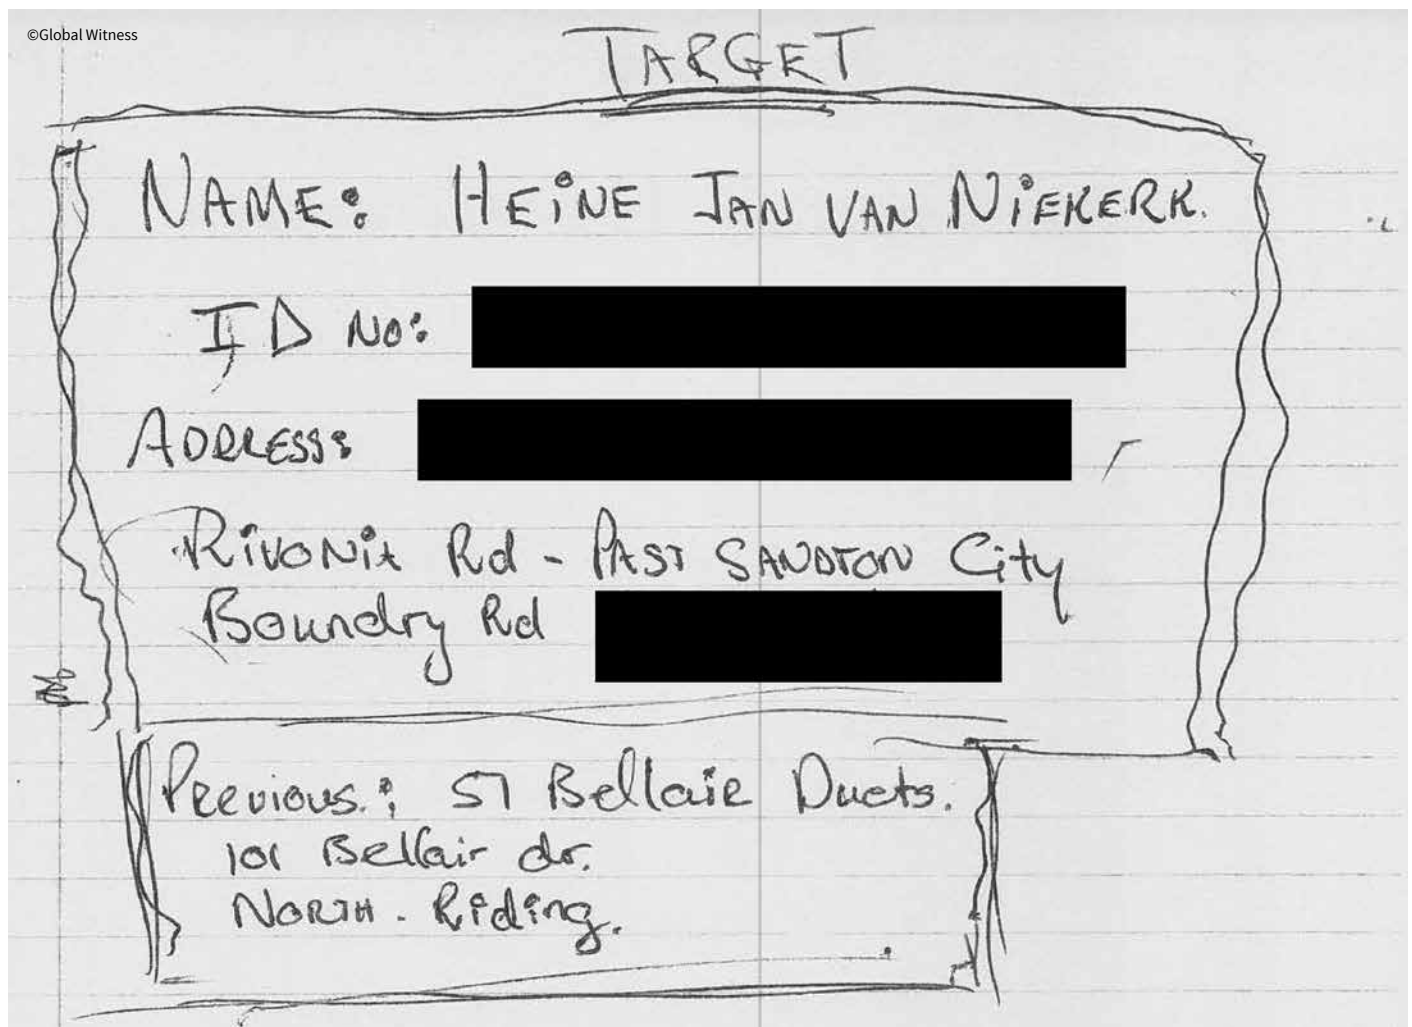 ©Global Witness
TARGET
NAME: HEINE JAN VAN NIEKERK.
ID NO:
ADDRESS:
RIVONIA Rd - PAST SANDTON City
Boundry Rd
Previous: 57 Bellair Ducts.
101 Bellair dr.
NORTH - Riding.